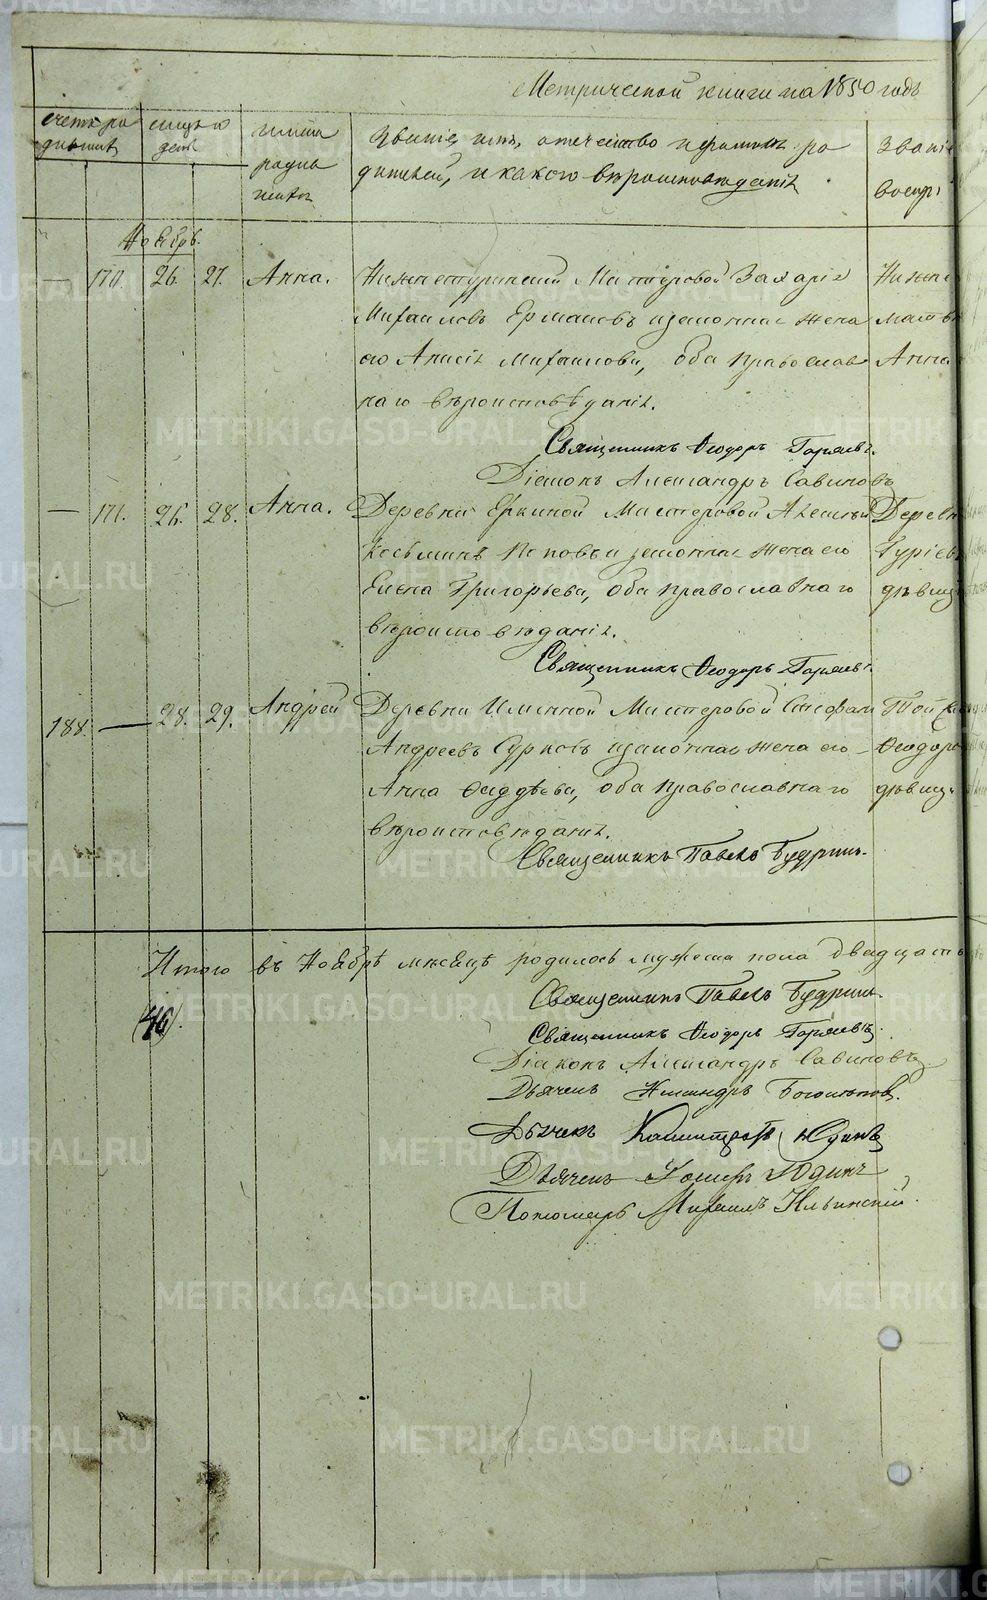 Метрической книги на 1850 годъ
Счетъ ро
дившихъ
Мѣсяцъ и
день
Имена
родив
шихся
Званіе, имя, отечество и фамилія ро
дителей, и какого вѣроисповѣданія
Званіе
воспр
Ноябрь.
— 170. 26. 27. Анна. Нижнетуринскій Мастеровой Захарія Нижне
Михаиловъ Ермаковъ и законная жена масте
его Анисія Михаилова, оба Православ Анна
наго вѣроисповѣданія.
Священникъ Ѳеодоръ Горяевъ.
Діаконъ Александръ Савиновъ
— 171. 26. 28. Анна. Деревни Елкиной Мастеровой Алексѣй Дерев
Косьминъ Поповъ и законная жена его Гурiев
Елена Григорьева, оба православнаго дѣвиц
вѣроисповѣданія.
Священникъ Ѳеодоръ Горяевъ.
188. — 28. 29. Андрей Деревни Именной Мастеровой Стефан Той
Андреевъ Сурковъ и законная жена его Ѳеодоро
Анна Ѳаддѣева, оба православнаго дѣвиц
вѣроисповѣданія.
Священникъ Павелъ Будринъ.
Итого въ Ноябрѣ мѣсяцѣ родилось мужеска пола двадцать
(46).
Священникъ Павелъ Будринъ.
Священникъ Ѳеодоръ Горяевъ.
Діаконъ Александръ Савиновъ
Дьячекъ
Дьячекъ Калистратъ Юдинъ
Дьячекъ Юдинъ
Пономарь Михаилъ Ильинскій.
METRIKI.GASO-URAL.RU